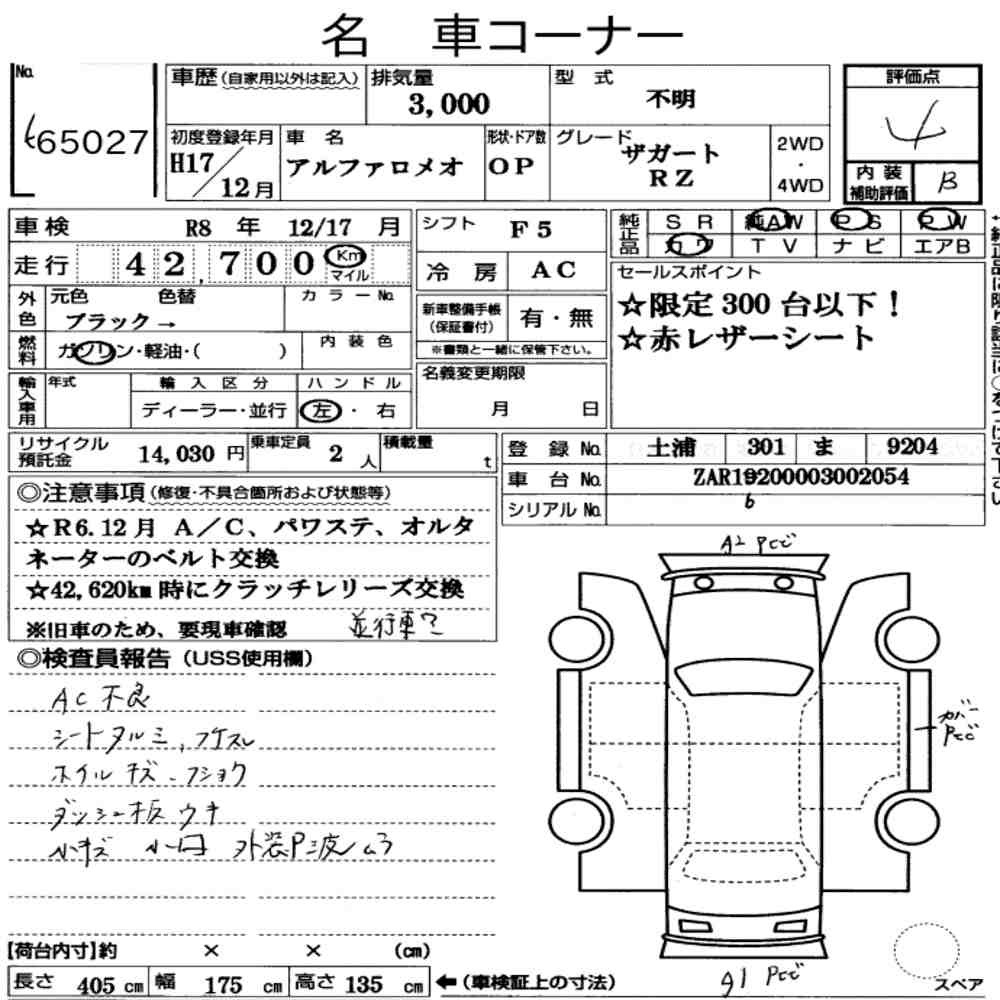 名 車コーナー
No. 65027
車歴(自家用以外は記入) 排気量 3,000 型 式 不明 評価点 4
初度登録年月 H17/12月 車 名 アルファロメオ 形状・ドア数 OP グレード ザガート RZ 2WD・4WD
内装補助評価 B
車検 R8 年 12/17 月 シフト F5 純正品 SR 純AW PS PW
カワ TV ナビ エアB
走行 42,700 Km マイル 冷 房 AC
セールスポイント
☆限定300台以下!
☆赤レザーシート
外色 元色 色替 カラーNo.
ブラック→
新車整備手帳(保証書付) 有・無
※書類と一緒に保管下さい。
燃料 ガソリン・軽油・( ) 内装色
輸入車用 年式 輸入区分 ハンドル
ディーラー・並行 左・右
名義変更期限
月 日
リサイクル預託金 14,030 円 乗車定員 2 人 積載量 t
登 録 No. 土浦 301 ま 9204
車 台 No. ZAR19200003002054
6
シリアルNo.
◎注意事項(修復・不具合箇所および状態等)
☆R6.12月 A/C、パワステ、オルタ
ネーターのベルト交換
☆42,620km時にクラッチレリーズ交換
※旧車のため、要現車確認 並行車?
◎検査員報告(USS使用欄)
AC不良
シートタルミ、スレ
ホイルキズ、フショク
ダッシュ板ウキ
小キズ 小凹 外装P波ムラ
A2 Pとビ
カバー Pとビ
A1 Pとビ
【荷台内寸】約 × × (cm)
長さ 405 cm 幅 175 cm 高さ 135 cm ←(車検証上の寸法)
スペア